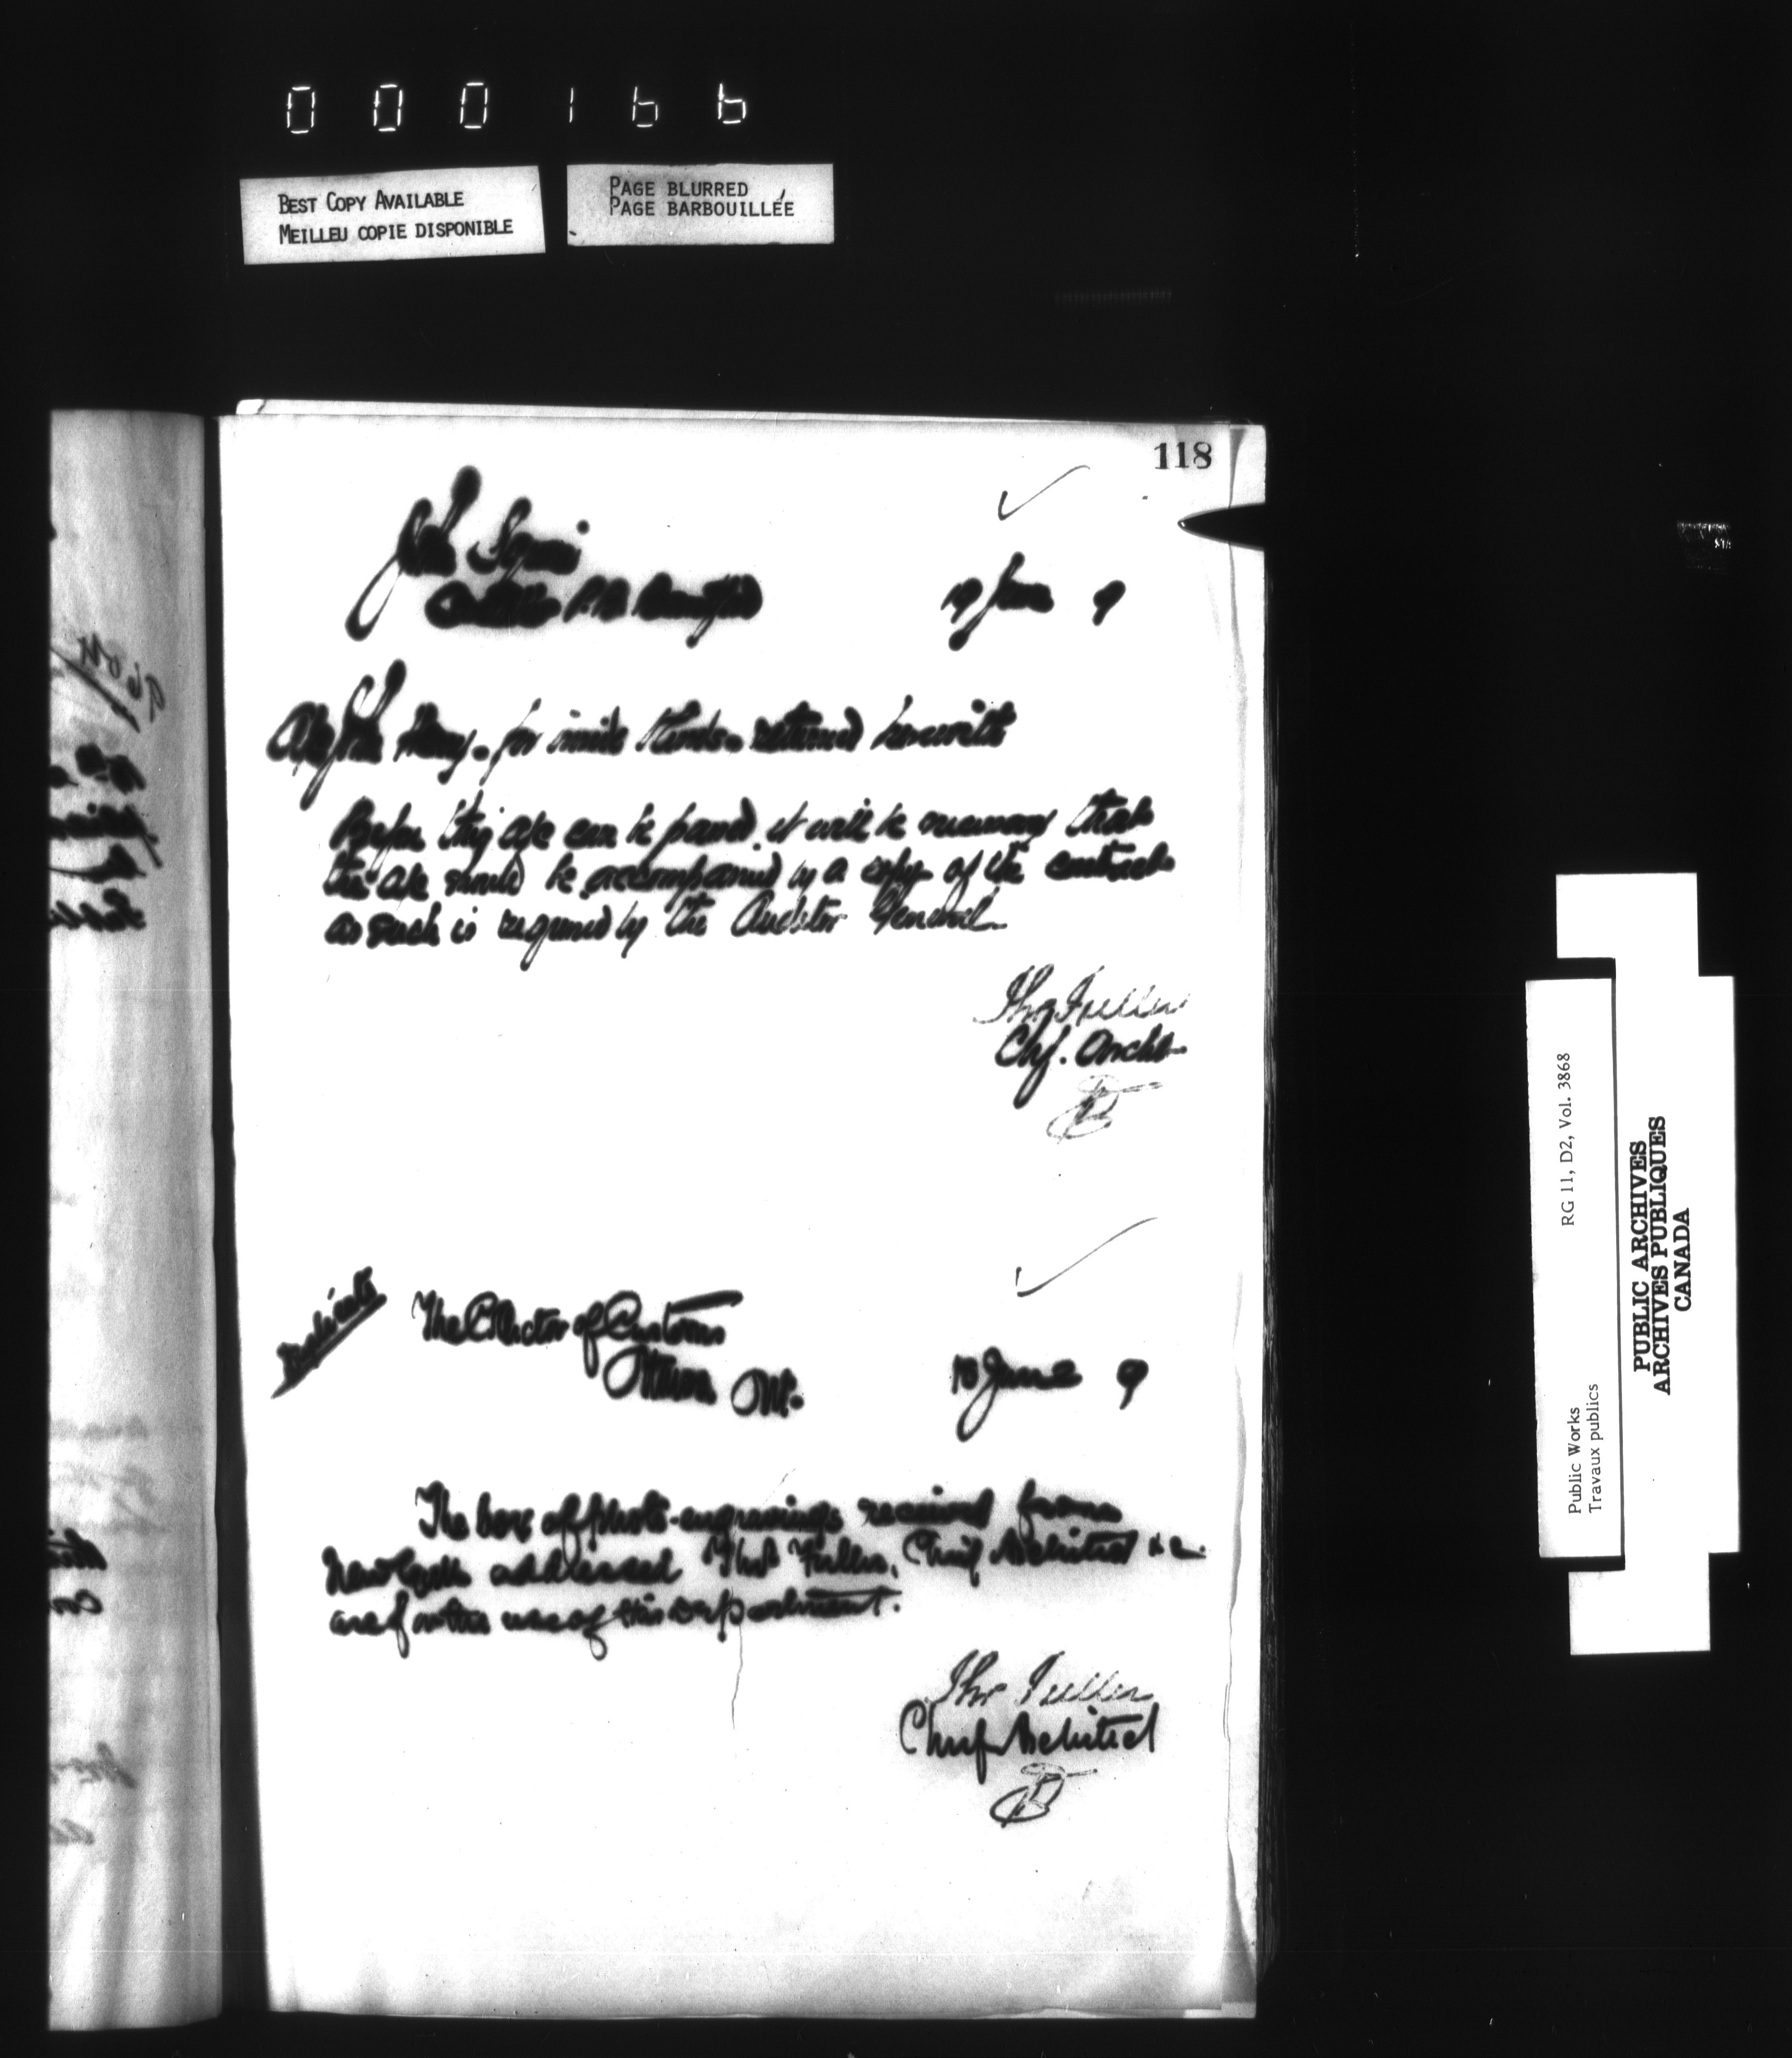 000166
BEST COPY AVAILABLE
MEILLEU COPIE DISPONIBLE
PAGE BLURRED
PAGE BARBOUILLÉE
118
John
19 June 9
A/c John for inside returned herewith
Before this a/c can be passed it will be necessary that
the a/c should be accompanied by a copy of the contract
as such is required by the Auditor General
Thos Fuller
Chf. Archt.
Duplicate
The Collector of Customs
Ottawa Ont.
18 June 9
The box of photo-engravings received from
New York addressed Thos Fuller, Chief Architect &c.
are for the use of this Department.
Thos Fuller
Chief Architect
Public Works
Travaux publics
RG 11, D2, Vol. 3868
PUBLIC ARCHIVES
ARCHIVES PUBLIQUES
CANADA